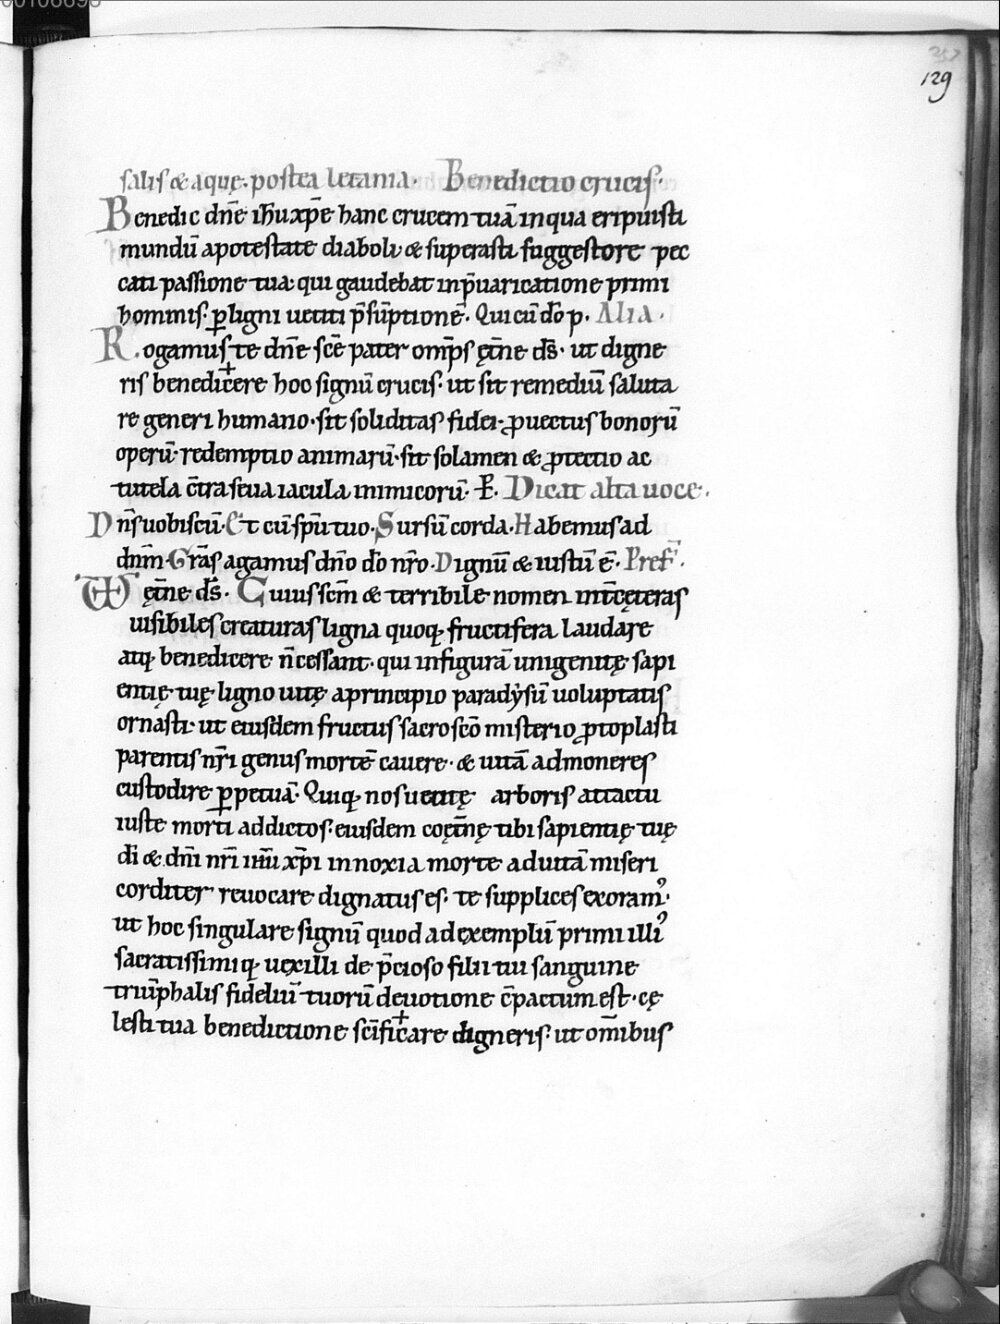 00106693
129
salis & aquę. postea letania. Benedictio crucis.
Benedic dn̄e ih̄u xp̄e hanc crucem tuā in qua eripuisti
mundū a potestate diaboli & superasti suggestore pec
cati passione tua· qui gaudebat in p̄uaricatione primi
hominis· ꝑ ligni uetiti p̄sūptionē. Qui cū d̄o p. Alia.
Rogamus te dn̄e sc̄e pater omp̄s ęt̄ne d̄s· ut digne
ris benedi✝cere hoc signū crucis· ut sit remediū saluta
re generi humano· sit soliditas fidei· ꝓuectus bonorū
operū· redemptio animarū· sit solamen & ꝓtectio ac
tutela c̄tra seua iacula inimicorū· P̄. Dicat alta uoce.
Dn̄s uobiscū· Et cū sp̄u tuo. Sursū corda. Habemus ad
dn̄m. Gr̄as agamus dn̄o d̄o nr̄o. Dignū & iustū ē. Pref̄.
VD ęt̄ne d̄s. Cuius sc̄m & terribile nomen int̄ cęteras
uisibiles creaturas ligna quoq; fructifera laudare
atq; benedicere n̄ cessant· qui in figurā unigenitę sapi
entię tuę ligno uitę a principio paradẏsū uoluptatis
ornasti· ut eiusdem fructus sacrosc̄o misterio ꝓtoplasti
parentis nr̄i genus mortē cauere· & uitā admoneres
custodire ꝑpetuā· Quiq; nos uetitę arboris attactu
iuste morti addictos· eiusdem coęt̄nę tibi sapientię tuę
d̄i & dn̄i nr̄i ih̄u xp̄i innoxia morte ad uitā miseri
corditer reuocare dignatus es· te supplices exoram᷒·
ut hoc singulare signū quod ad exemplū primi illi᷒
sacratissimiq; uexilli de p̄cioso filii tui sanguine
triūphalis fideliū tuorū deuotione c̄pactum est· cę
lesti tua benedictione sc̄ifi✝care digneris· ut om̄ibus